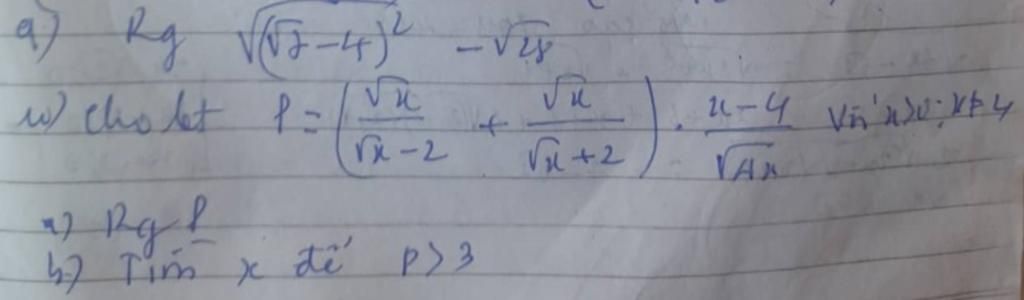 a) Rg √(√7-4)² - √28
b) Cho bt P = (√x/(√x-2) + √x/(√x+2)) . (x-4)/√4x Với x>0; x≠4
a) Rg P
b) Tìm x để P>3